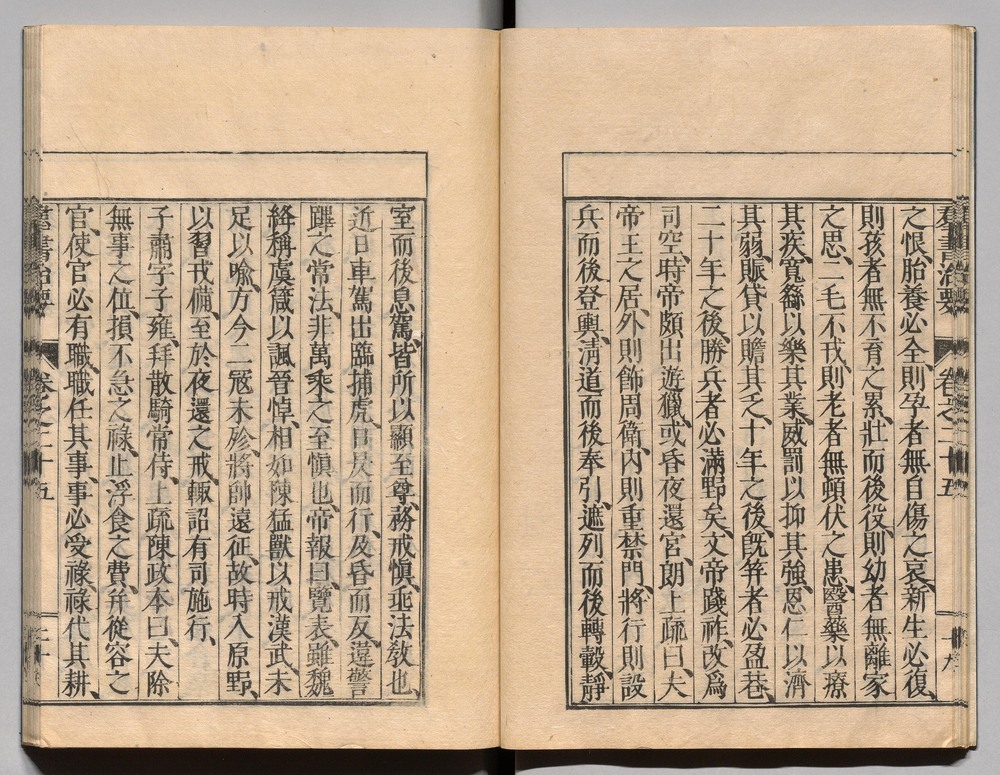 羣書治要 卷之二十五 十九
之恨、胎養必全、則孕者無自傷之哀、新生必復、
則孩者無不育之累、壯而後役、則幼者無離家
之思、二毛不戎、則老者無頓伏之患、醫藥以療
其疾、寬繇以樂其業、威罰以抑其強、恩仁以濟
其弱、賑貸以贍其乏、十年之後、旣笄者必盈巷、
二十年之後、勝兵者必滿野矣、文帝踐祚、改爲
司空、時帝頗出遊獵、或昏夜還宮、朗上疏曰、夫
帝王之居、外則飾周衛、內則重禁門、將行則設
兵而後登輿、淸道而後奉引、遮列而後轉轂、靜
室而後息駕、皆所以顯至尊、務戒愼、垂法敎也、
近日車駕出臨捕虎、日昃而行、及昏而反、違警
蹕之常法、非萬乘之至愼也、帝報曰、覽表、雖魏
絳稱虞箴以諷晉悼、相如陳猛獸以戒漢武、未
足以喩、方今二冦未殄、將帥遠征、故時入原野、
以習戎備、至於夜還之戒、輙詔有司施行、
子肅字子雍、拜散騎常侍、上疏陳政本曰、夫除
無事之位、損不急之祿、止浮食之費、幷從容之
官、使官必有職、職任其事、事必受祿、祿代其耕、
羣書治要 卷之二十五 二十